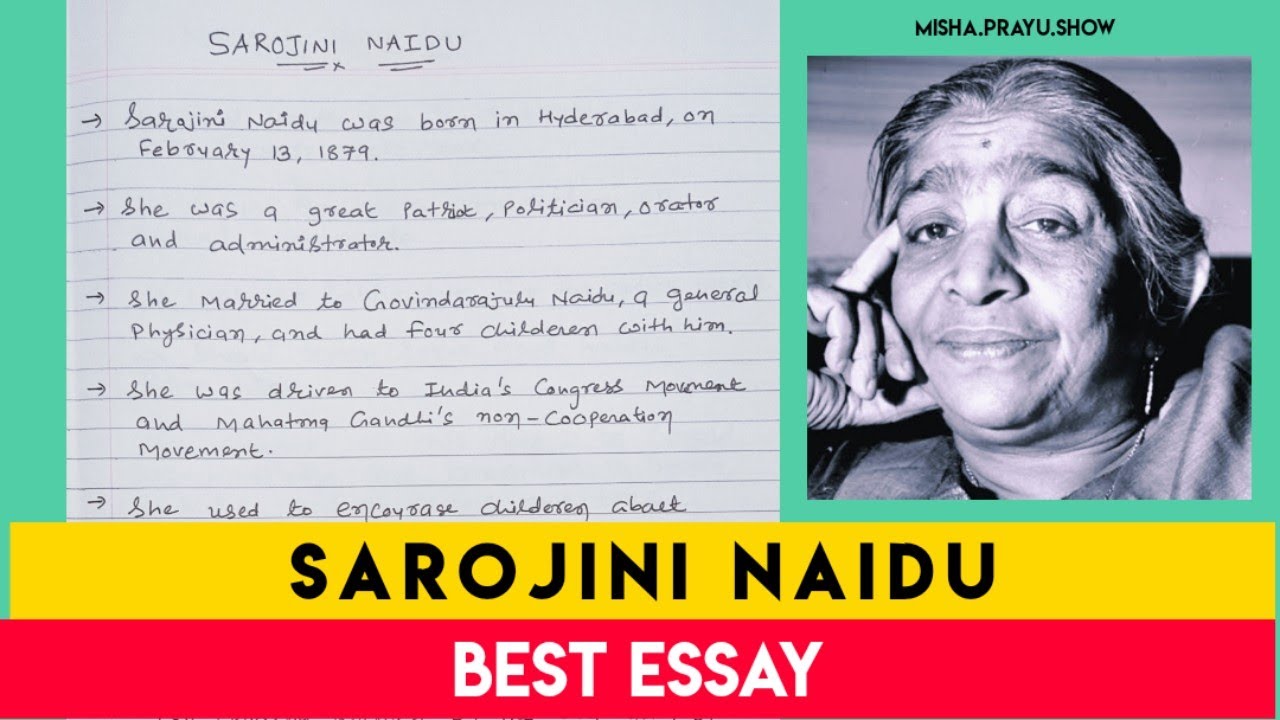 SAROJINI NAIDU
→ Sarojini Naidu was born in Hyderabad, on
February 13, 1879.
→ She was a great Patriot, Politician, orator
and administrator.
→ She Married to Govindarajulu Naidu, a general
Physician, and had four childeren with him.
→ She was driven to India's Congress Movement
and Mahatma Gandhi's non-Cooperation
Movement.
→ She used to encourase childeren abaet
MISHA.PRAYU.SHOW
SAROJINI NAIDU
BEST ESSAY